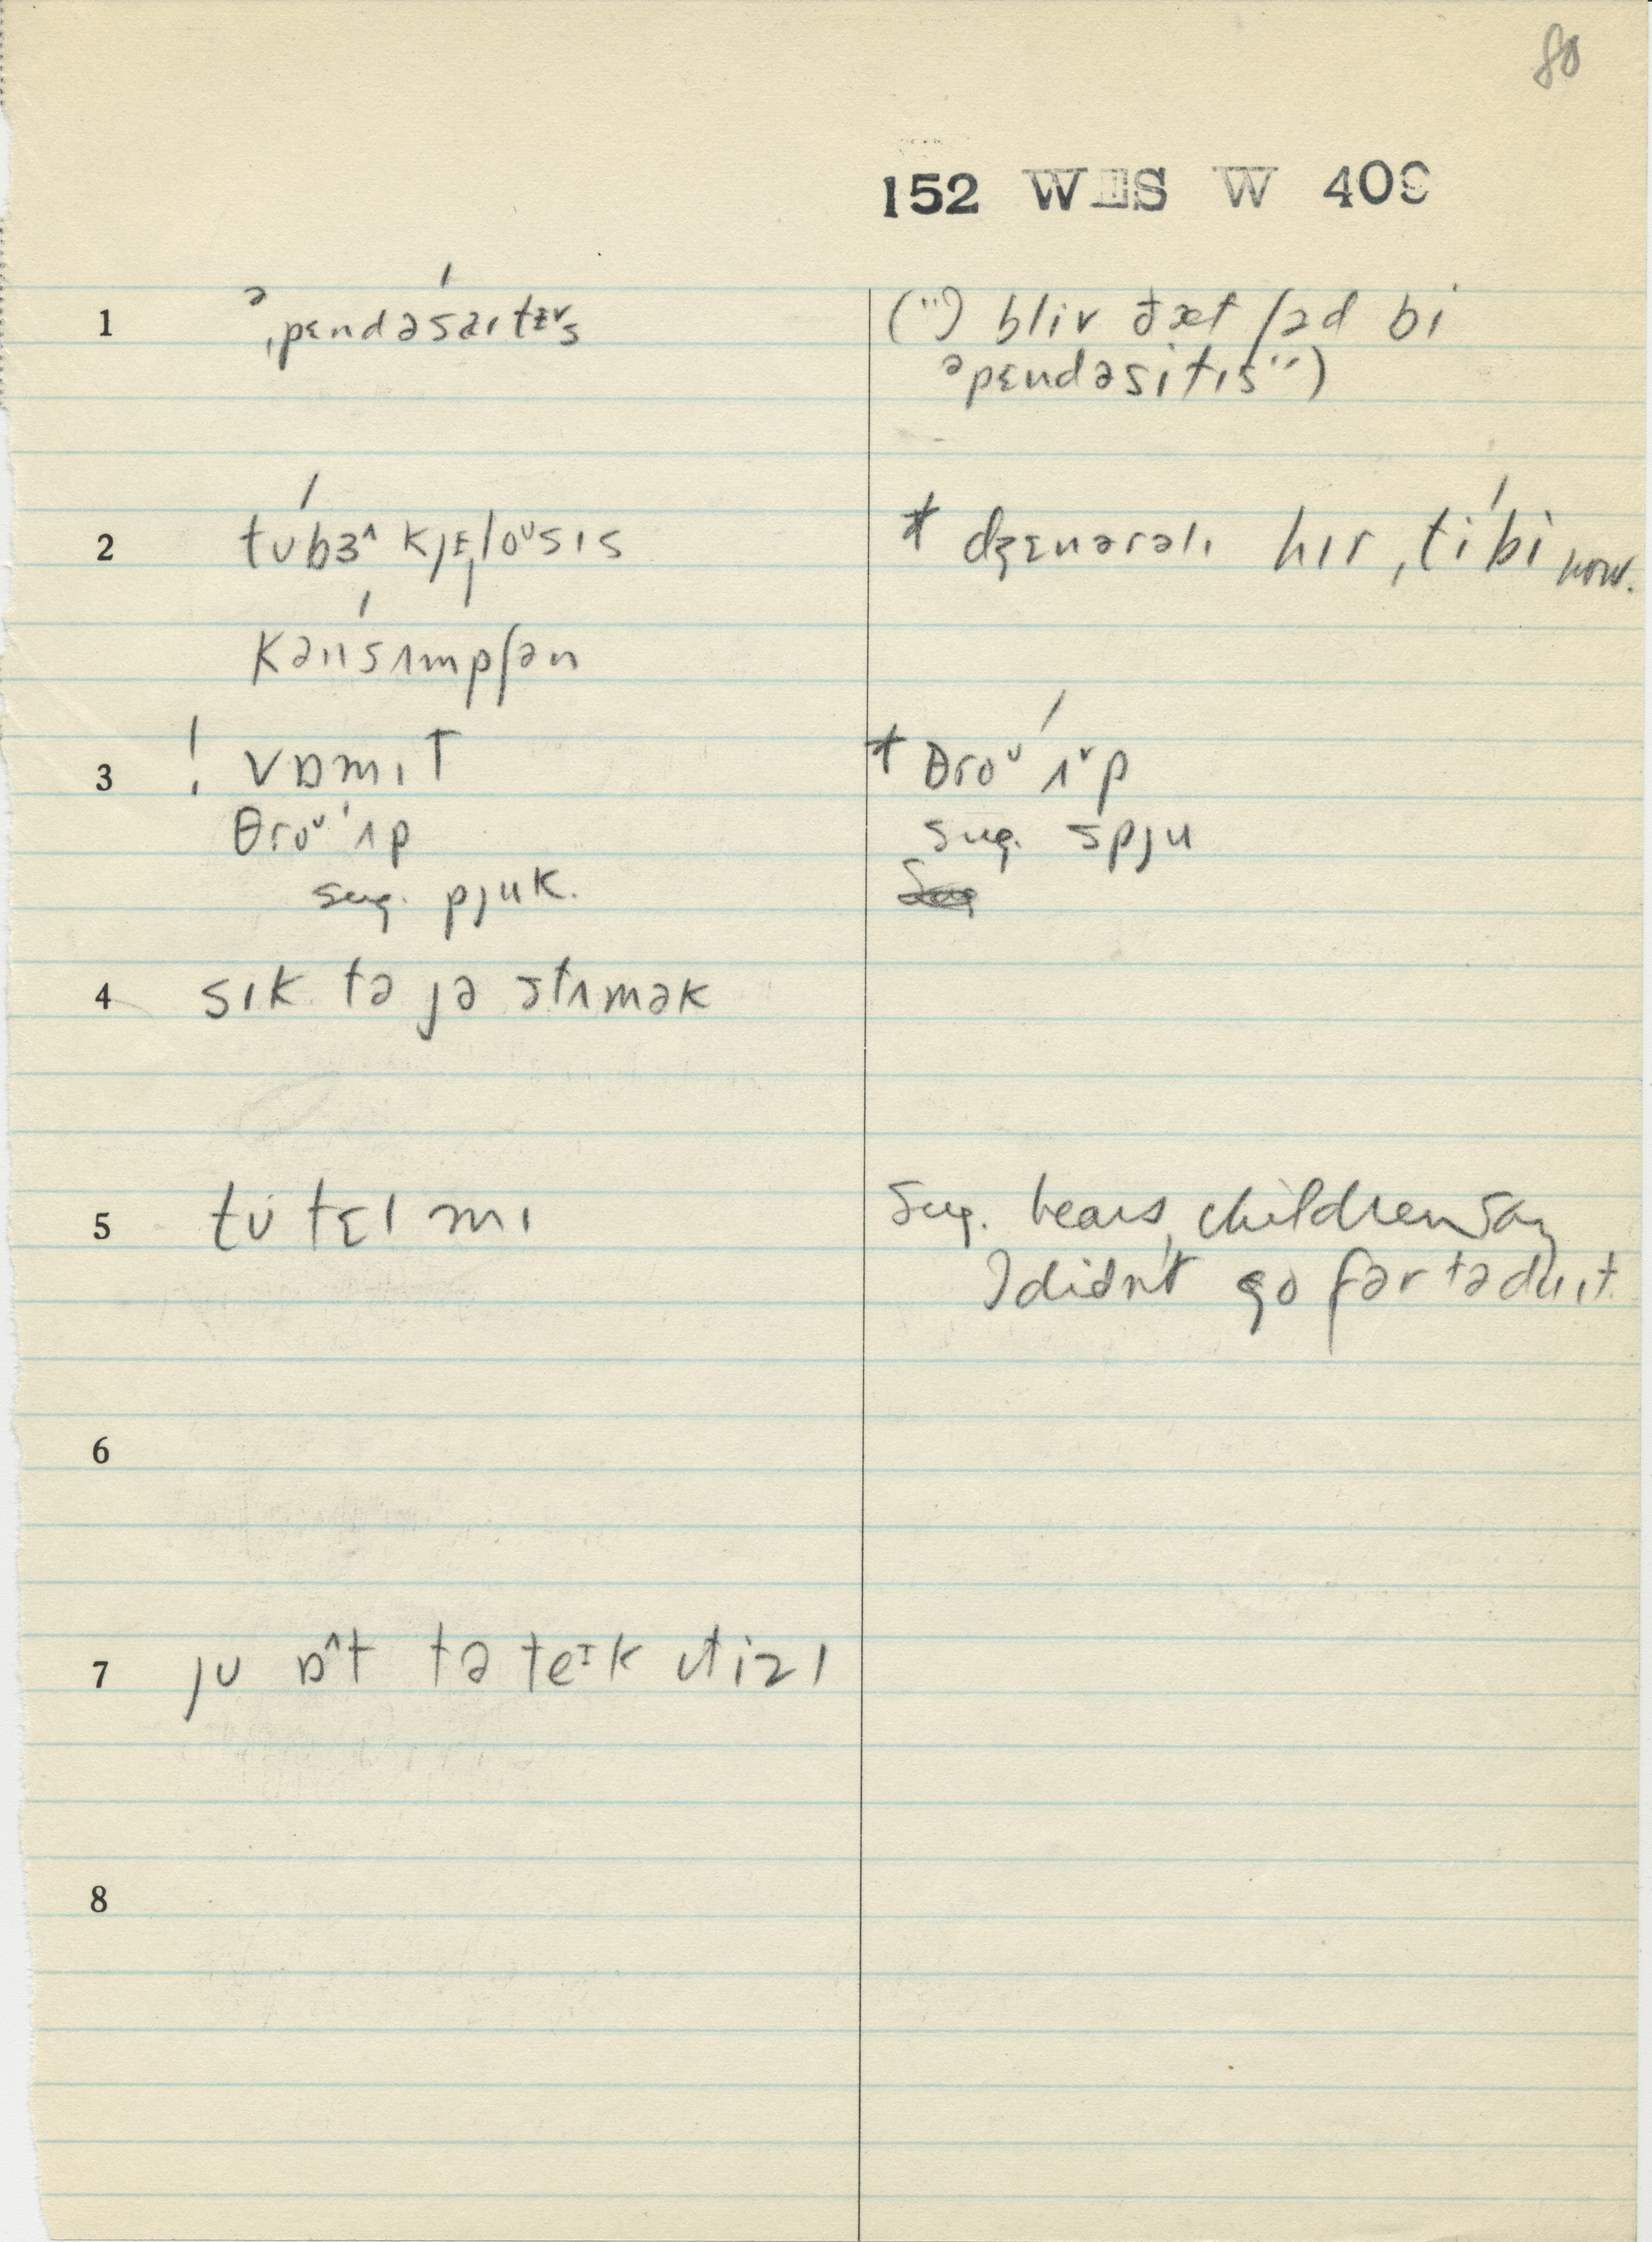 80
152 WIS W 409
1 əˌpɛndəsáɪtɪ̵ˇs
(") bliv ðæt ʃəd bi
əpɛndəsitɪs")
2 túbɜ^kjɛ̨loᵘsɪs
* dʒɛnərəlɪ hɪr, tíbì now.
kənsʌ́mpʃən
3 ! vɒmɪt
* θroᵘ ʌ́ˇp
θroᵘ ʌ́p
sug. spju
sug. pjuk.
4 sɪk tə jə stʌmək
5 tú tɛl mɪ
Sug. hears, children say
I didn't go fər tə du ɪt
6
7 ju ɒ^t tə teᴵk
8